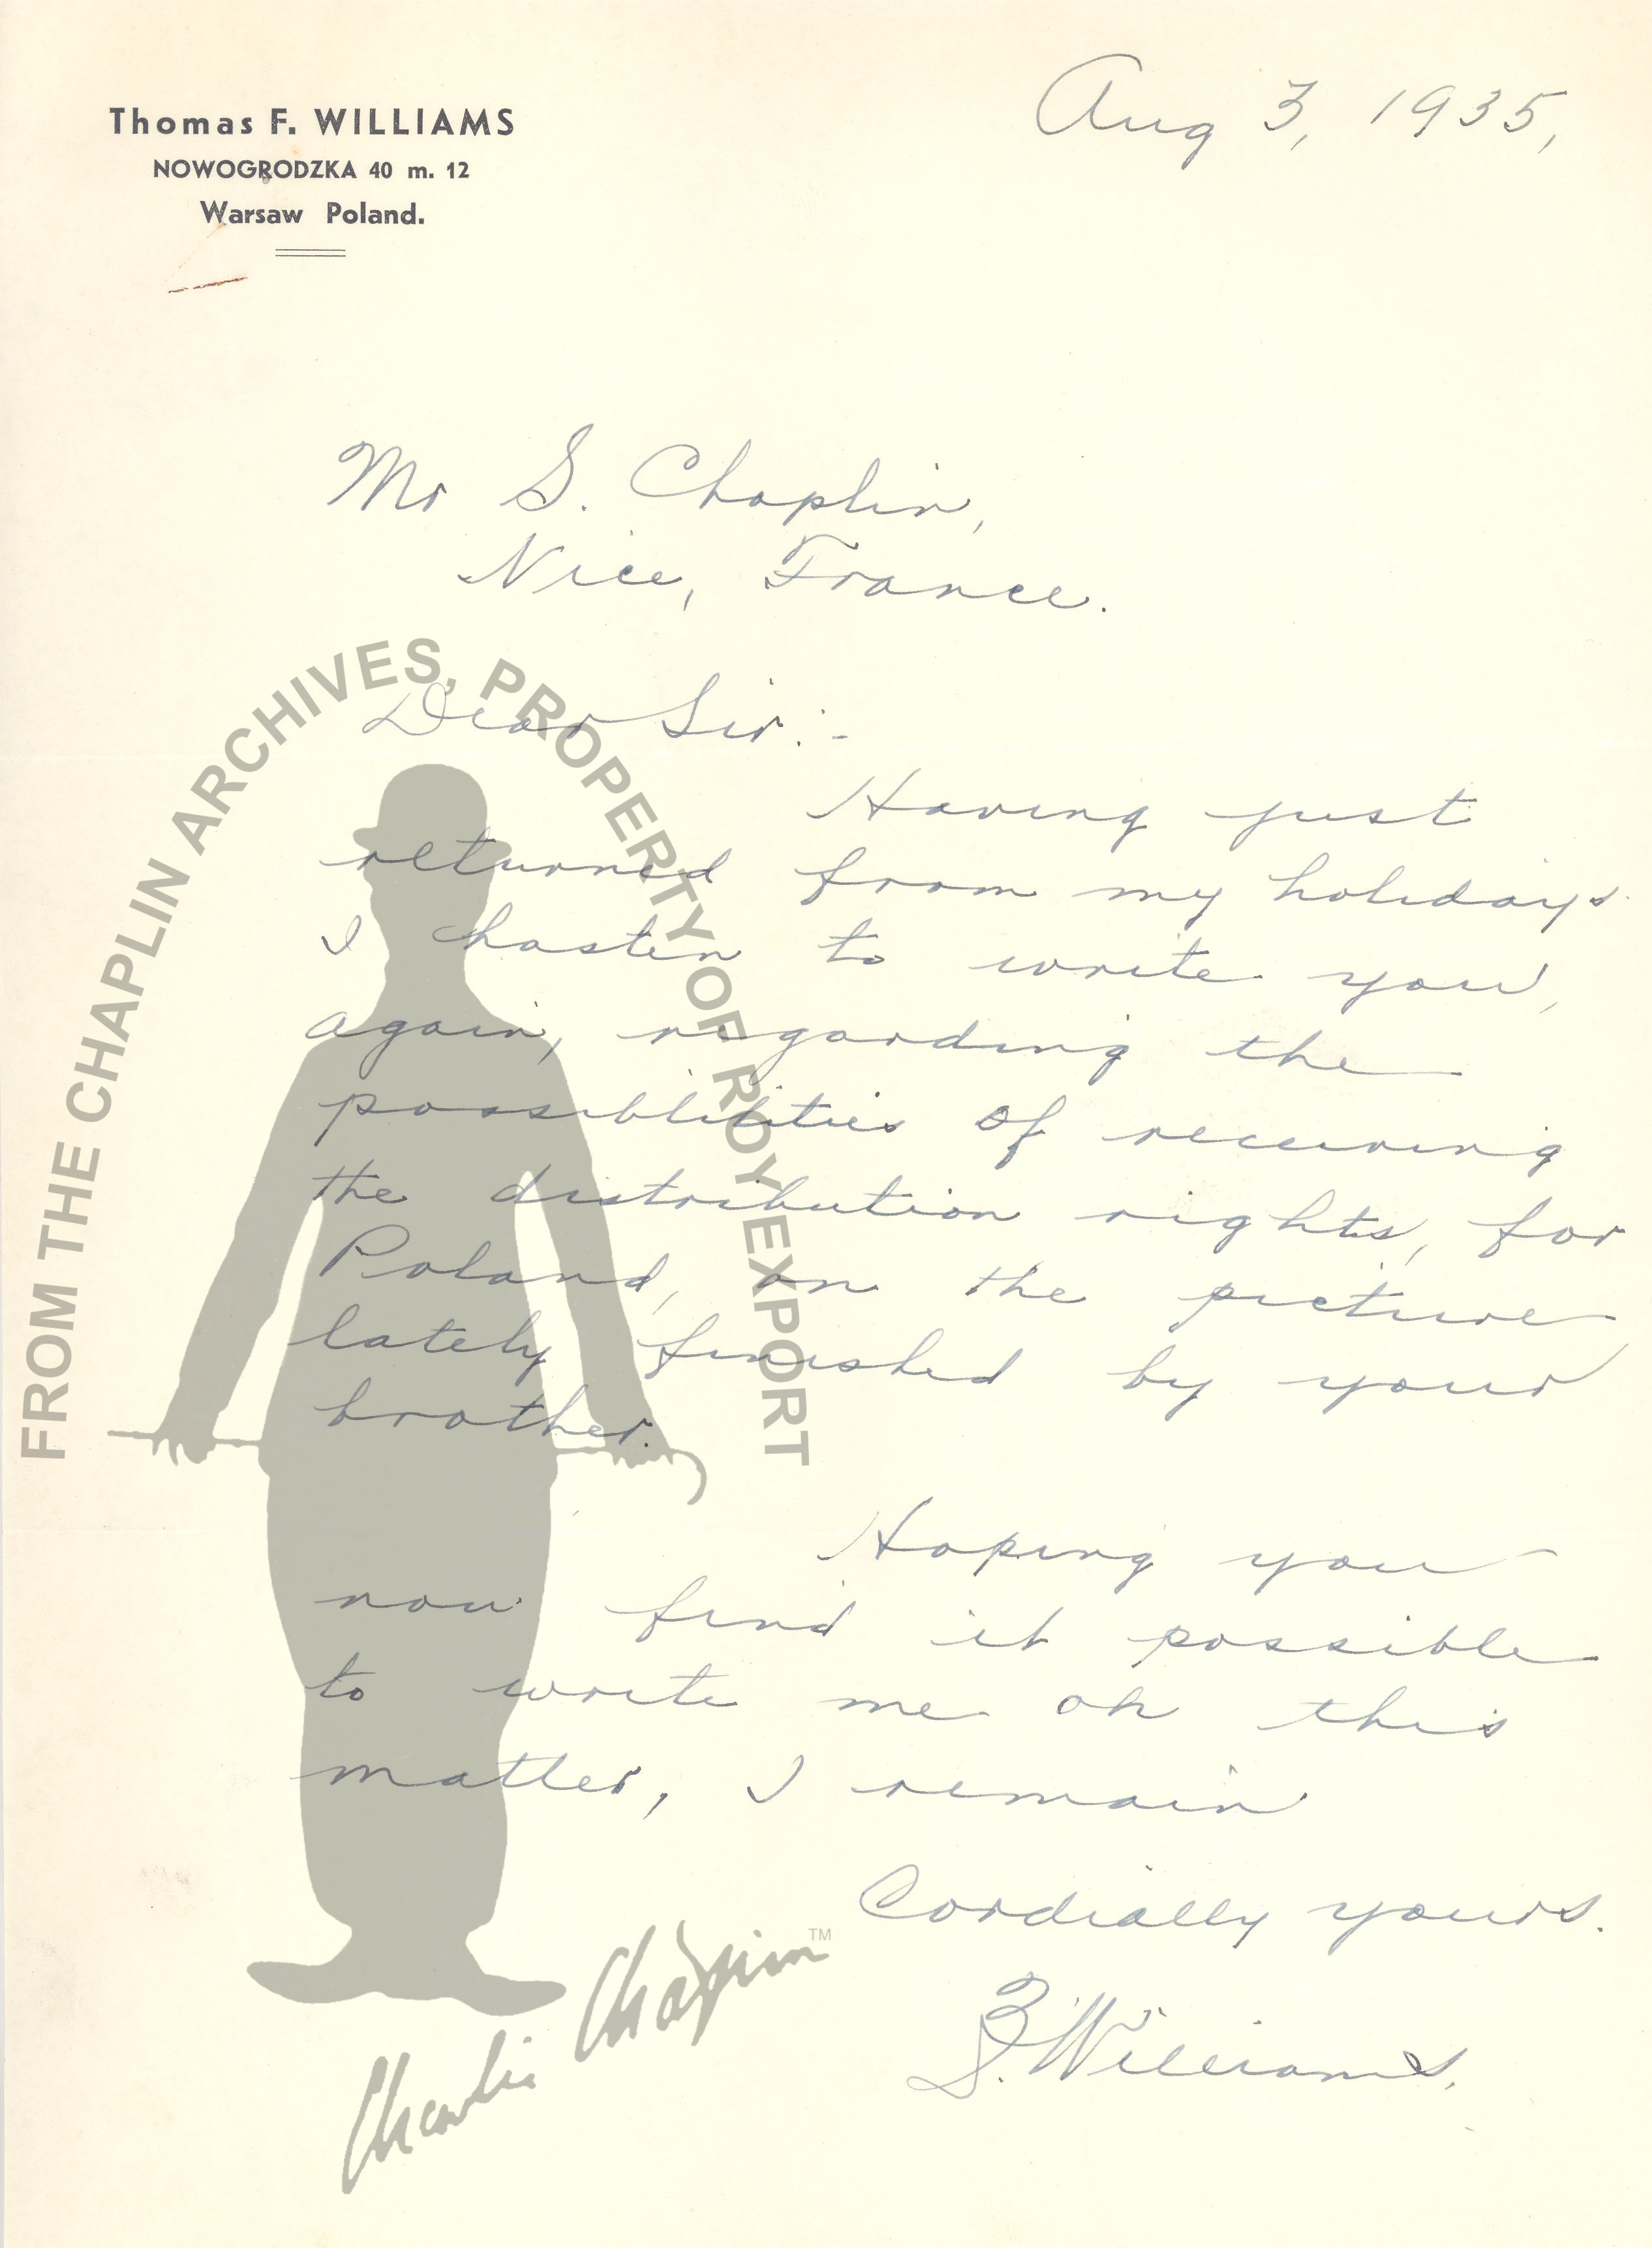 Thomas F. WILLIAMS
NOWOGRODZKA 40 m. 12
Warsaw Poland.
Aug 3, 1935,
Mr S. Chaplin,
Nice, France.
Dear Sir:-
Having just
returned from my holidays
I hasten to write you,
again, regarding the
possiblilities of receiving
the distribution rights, for
Poland, on the picture
lately finished by your
brother.
Hoping you
now find it possible
to write me on this
matter, I remain
Cordially yours.
Williams.
FROM THE CHAPLIN ARCHIVES, PROPERTY OF ROY EXPORT
Charlie Chaplin TM